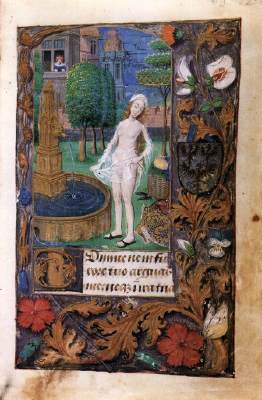 Domine ne in fu
rore tuo arguas
me neqz in ira tua